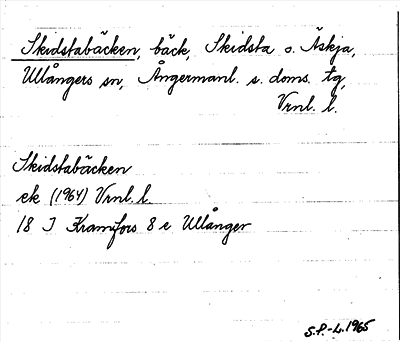 Skidstabäcken, bäck, Skidsta o. Äskja,
Ullångers sn, Ångermanl. s. doms. tg,
Vrnl. l.
Skidstabäcken
ek (1964) Vrnl. l.
18 I Kramfors 8 e Ullånger
S.P.-L. 1965